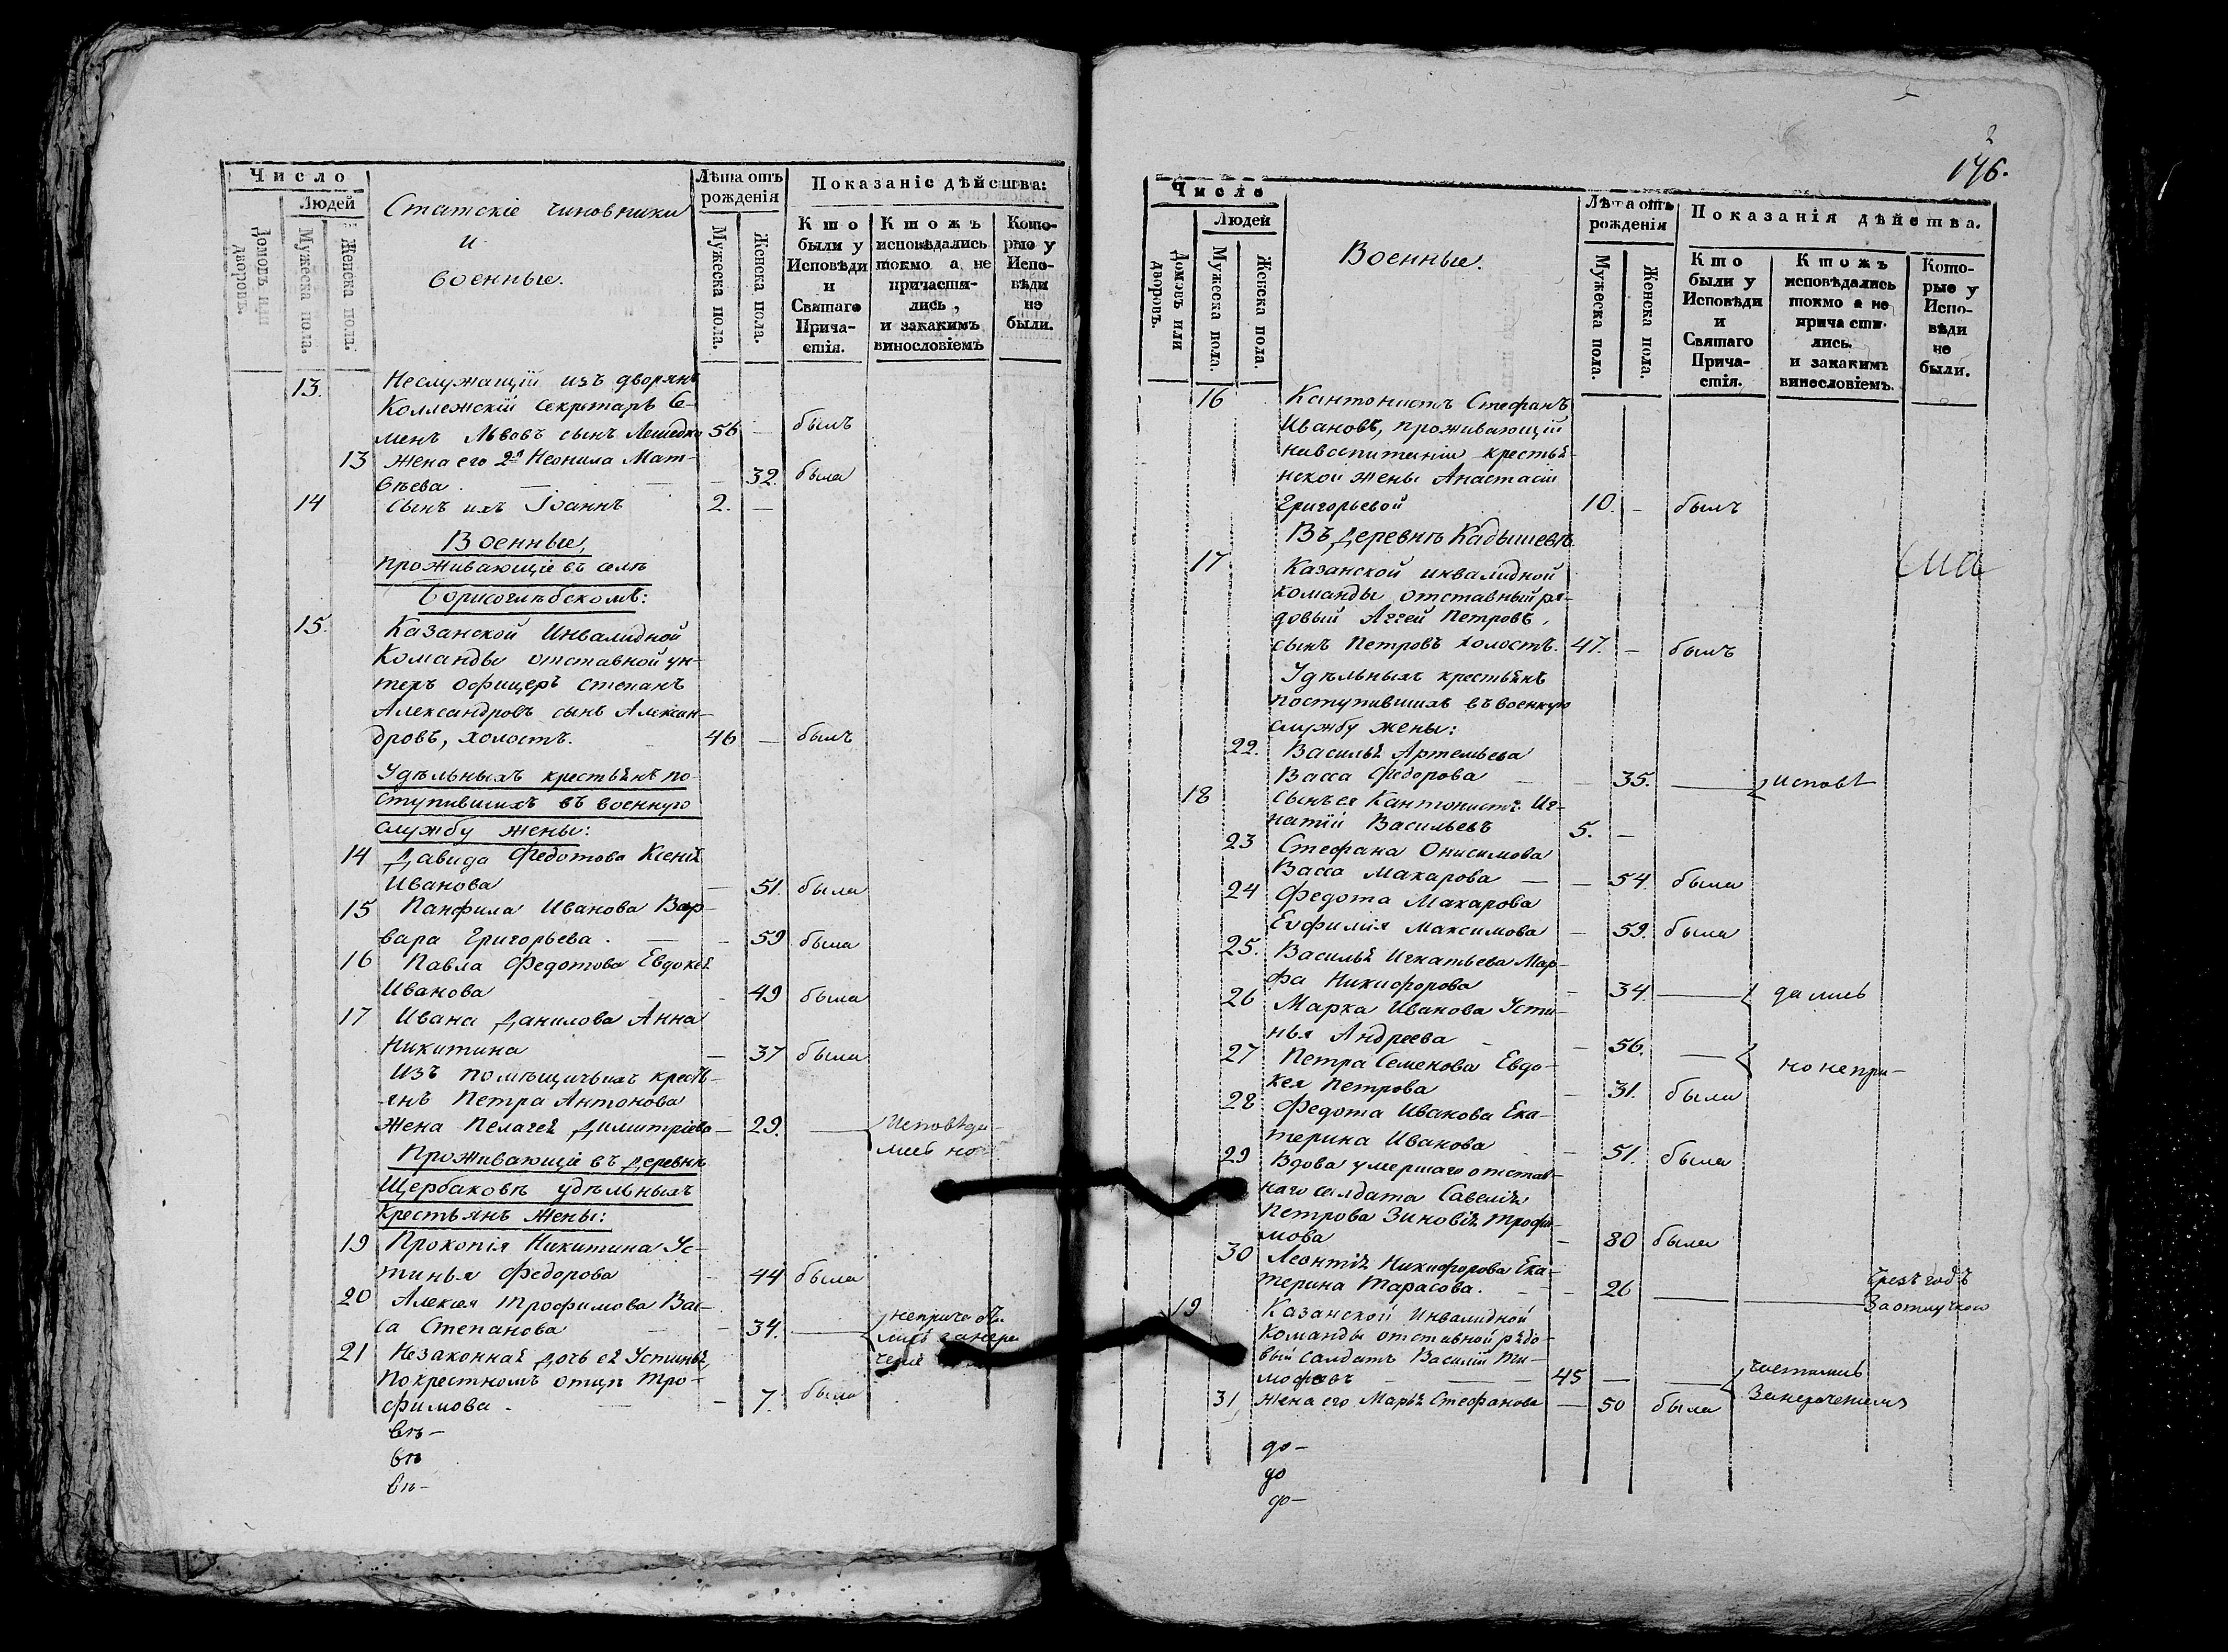 Число
Людей
Домовъ или дворовъ.
Мужеска пола.
Женска пола.
Статскіе чиновники
и
военные.
Лѣта отъ рожденія
Мужеска пола.
Женска пола.
Показаніе дѣйства:
Кто были у Исповѣди и Святаго Причастія.
Ктожъ исповѣдались токмо а не причастились, и закакимъ винословіемъ
Которые у Исповѣди не были.
13. Неслужащій изъ дворянъ
Коллежскій Секретарь Се-
менъ Львовъ сынъ 56 — былъ
13 Жена его 2я Неонила Мат-
вѣева — — — 32. была
14 Сынъ ихъ Іоаннъ 2. —
Военные,
проживающіе въ селѣ
Борисоглѣбскомъ:
15. Казанской Инвалидной
Команды отставной ун-
теръ офицеръ Степанъ
Александровъ сынъ Алексан-
дровъ, холостъ. 46 — былъ
Удѣльныхъ крестьянъ по-
ступившихъ въ военную
службу жены:
14 Давида Федотова Ксенія
Иванова — 51. была
15 Панфила Иванова Вар-
вара Григорьева. — — 59 была
16 Павла Федотова Евдокея
Иванова - 49 была
17 Ивана Данилова Анна
Никитина — 37 была
Изъ помѣщичьихъ кресть-
янъ Петра Антонова
жена Пелагея Димитріева — 29. — Исповѣда-
лись но
Проживающіе въ деревнѣ
Щербаковѣ удѣльныхъ
крестьянъ жены:
19 Прокопія Никитина Ус-
тинья Федорова - 44 была
20 Алексея Трофимова Вас-
са Степанова - 34. — непричасти-
лись занере-
ченіе
21 Незаконная дочь ея Устинья
По крестномъ отцѣ Тро-
фимова. — — 7. была
въ-
въ
въ-
2
176.
Число
Людей
Домовъ или дворовъ.
Мужеска пола.
Женска пола.
Военные.
Лѣта отъ рожденія
Мужеска пола.
Женска пола.
Показанія дѣйства.
Кто были у Исповѣди и Святаго Причастія.
Ктожъ исповѣдались токмо а не причастились. и закакимъ винословіемъ.
Которые у Исповѣди не были.
16 Кантонистъ Стефанъ
Ивановъ, проживающій
навоспитаніи крестья-
нской жены Анастасіи
Григорьевой 10. - былъ
Въ деревнѣ Кадышевѣ
17 Казанской инвалидной
команды отставный ря-
довый Аггей Петровъ,
сынъ Петровъ холостъ. 47. - былъ
Удѣльныхъ крестьянъ
поступившихъ въ военную
службу жены:
22. Василья Артемьева
Васса Федорова — — 35. — исповѣ
18 Сынъ ея Кантонистъ Иг-
натій Васильевъ 5. —
23 Стефана Онисимова
Васса Макарова — — 54. была
24 Федота Макарова
Евфимія Максимова — 59. была
25. Василья Игнатьева Мар-
фа Никифорова - 34. — дались
26 Марка Иванова Усти-
нья Андреева - - 56. — но непри-
27 Петра Семенова Евдо-
кея Петрова - 31. была
28 Федота Иванова Ека-
терина Иванова - 51. была
29 Вдова умершаго отстав-
наго солдата Савелія
Петрова Зиновія Трофи-
мова - 80 была
30 Леонтія Никифорова Ека-
терина Тарасова. - - 26 — — чрезъ годъ
Заотлучкою
19 Казанской Инвалидной
Команды отставной рядо-
вый солдатъ Василій Ти-
мофеевъ — — 45 — — частились
занереченіемъ
31 жена его Марья Стефанова — 50 была
до-
до
до-